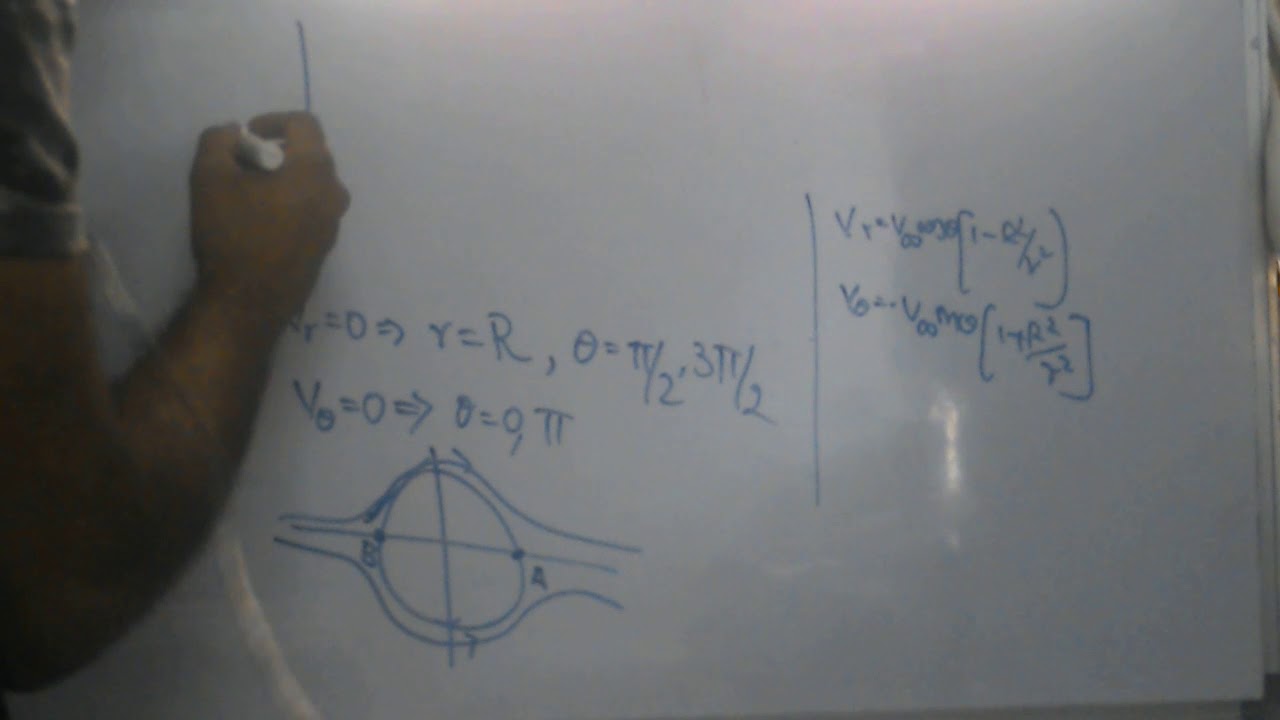 Vr=0 ⇒ r=R, θ=π/2, 3π/2
Vθ=0 ⇒ θ=0, π
B
A
Vr=V∞cosθ(1-R²/r²)
Vθ=-V∞sinθ[1+R²/r²]